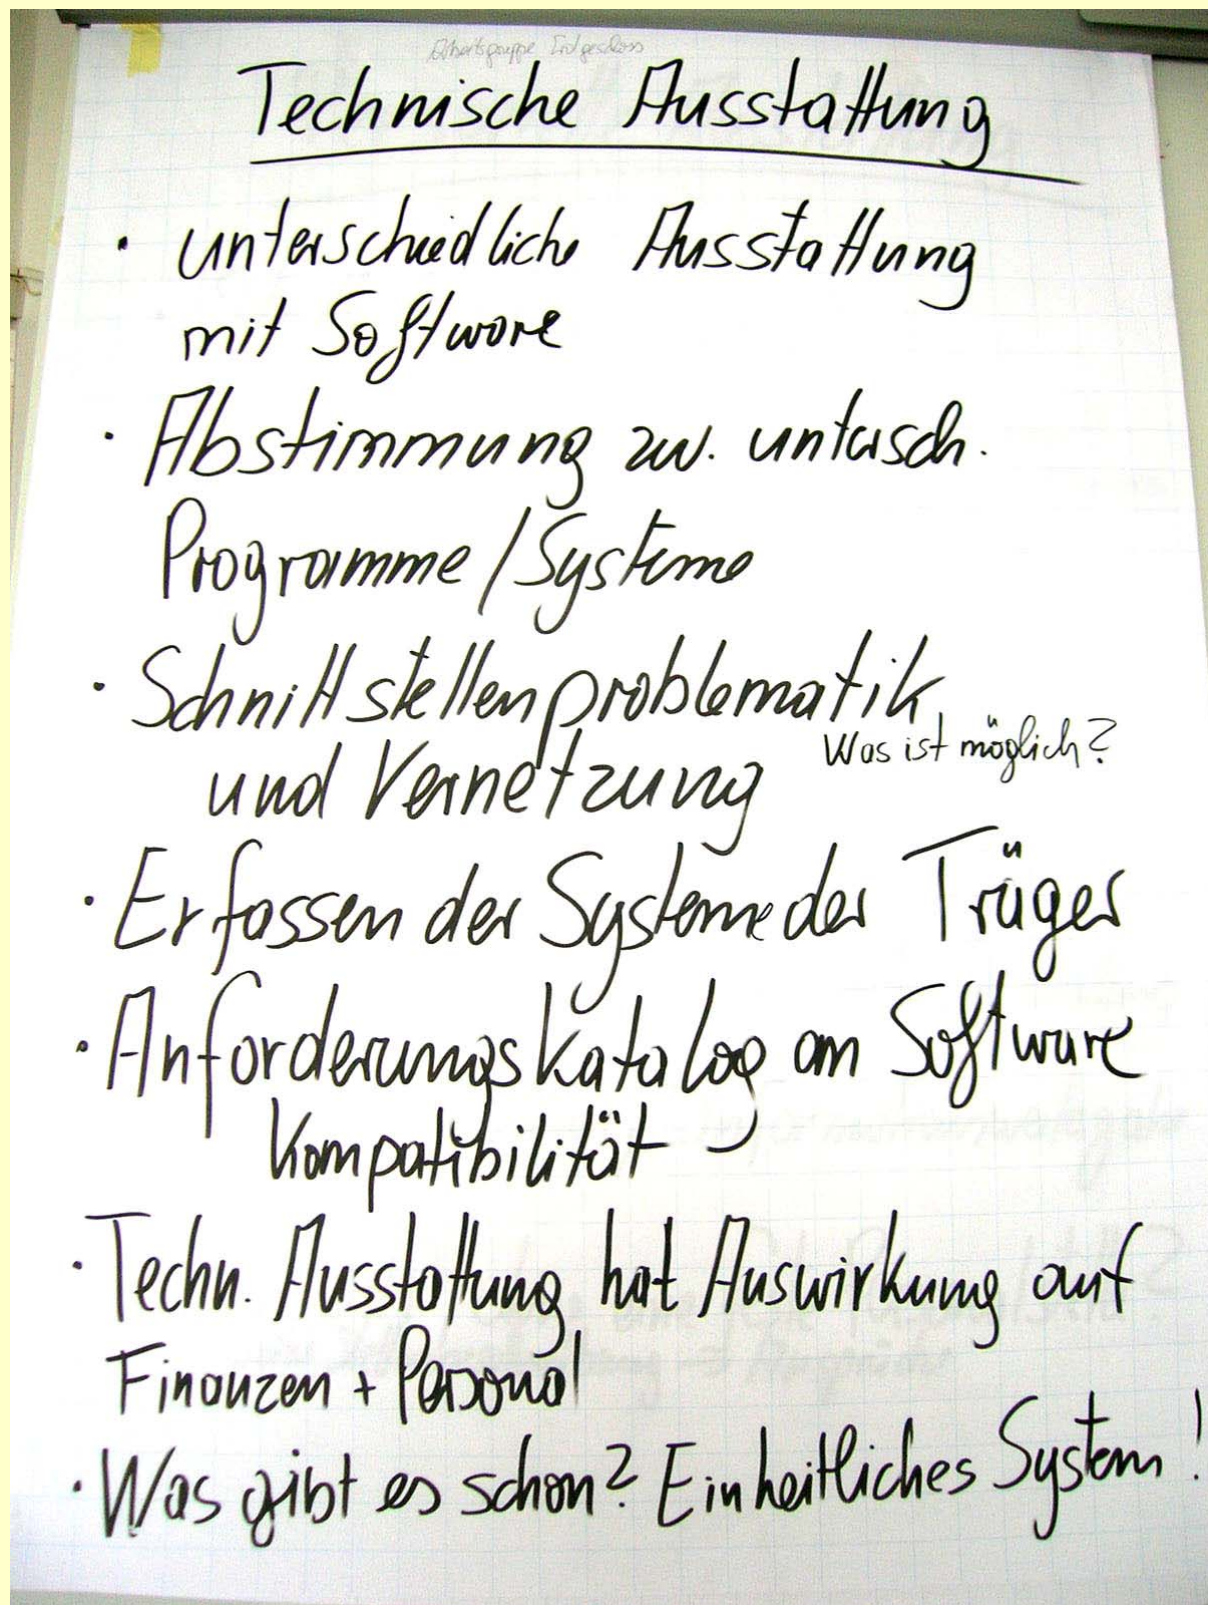 Arbeitsgruppe Erdgeschoss
Technische Ausstattung
· unterschiedliche Ausstattung
mit Software
· Abstimmung zw. untersch.
Programme / Systeme
· Schnittstellenproblematik
und Vernetzung Was ist möglich?
· Erfassen der Systeme der Träger
· Anforderungskatalog an Software
Kompatibilität
· Techn. Ausstattung hat Auswirkung auf
Finanzen + Personal
· Was gibt es schon? Einheitliches System!